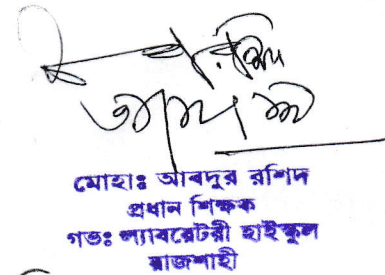 মোহাঃ আবদুর রশিদ
প্রধান শিক্ষক
গভঃ ল্যাবরেটরী হাইস্কুল
রাজশাহী